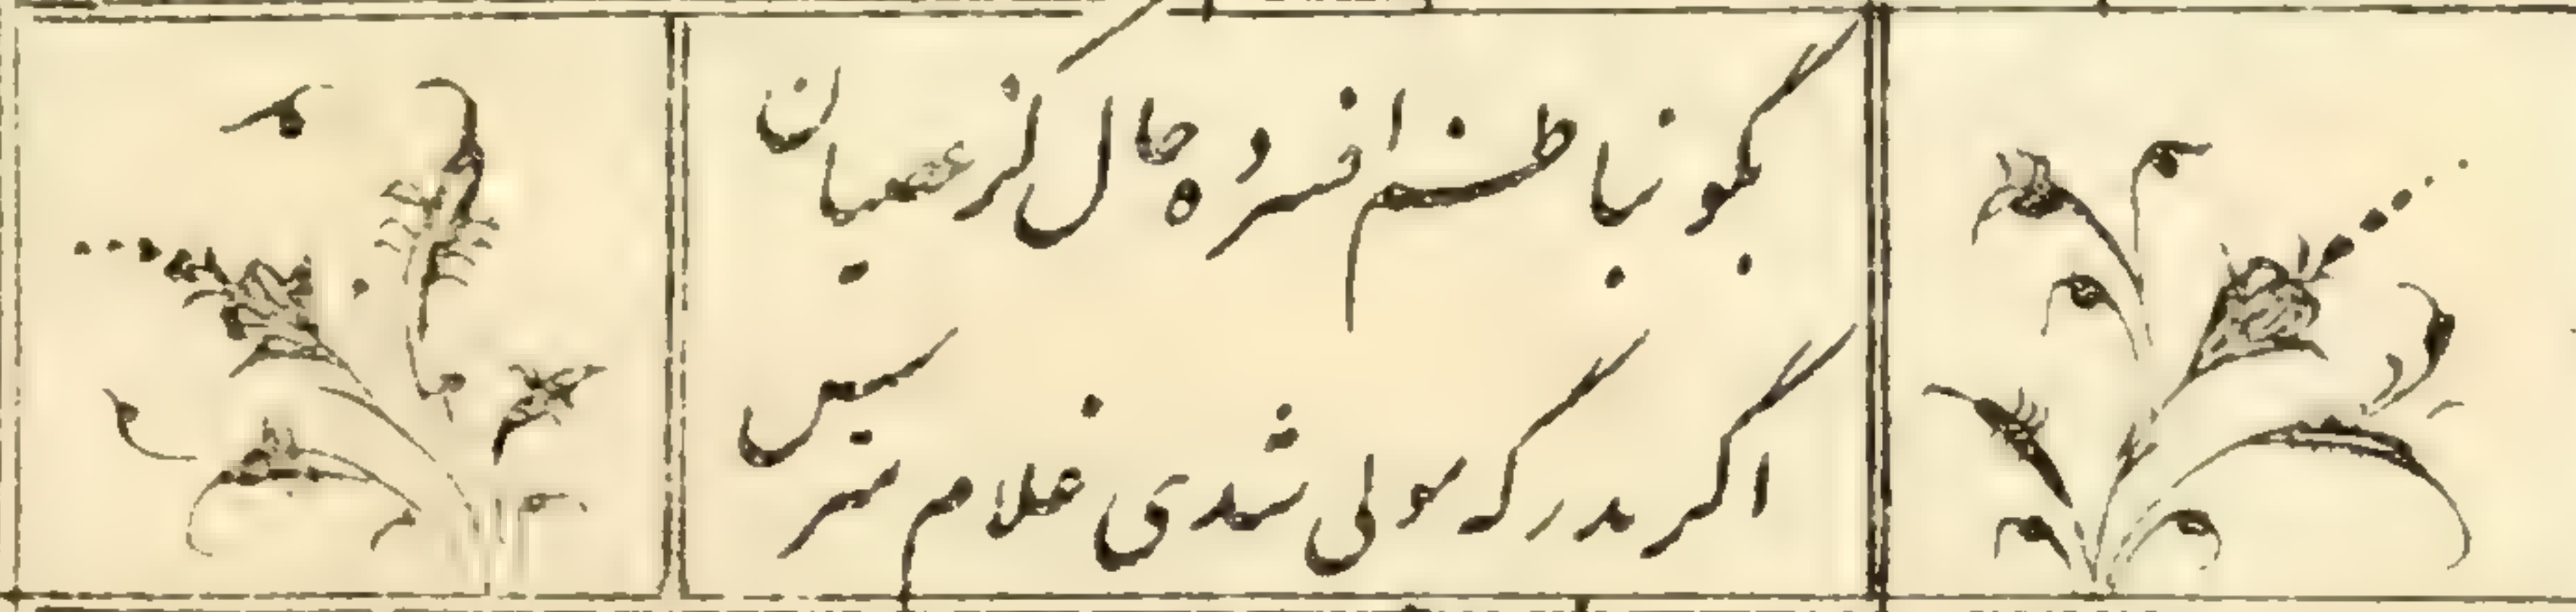 بگو بناظم افسرده حال کز عصیان
اگر بدرگه مولی شدی غلام مترس